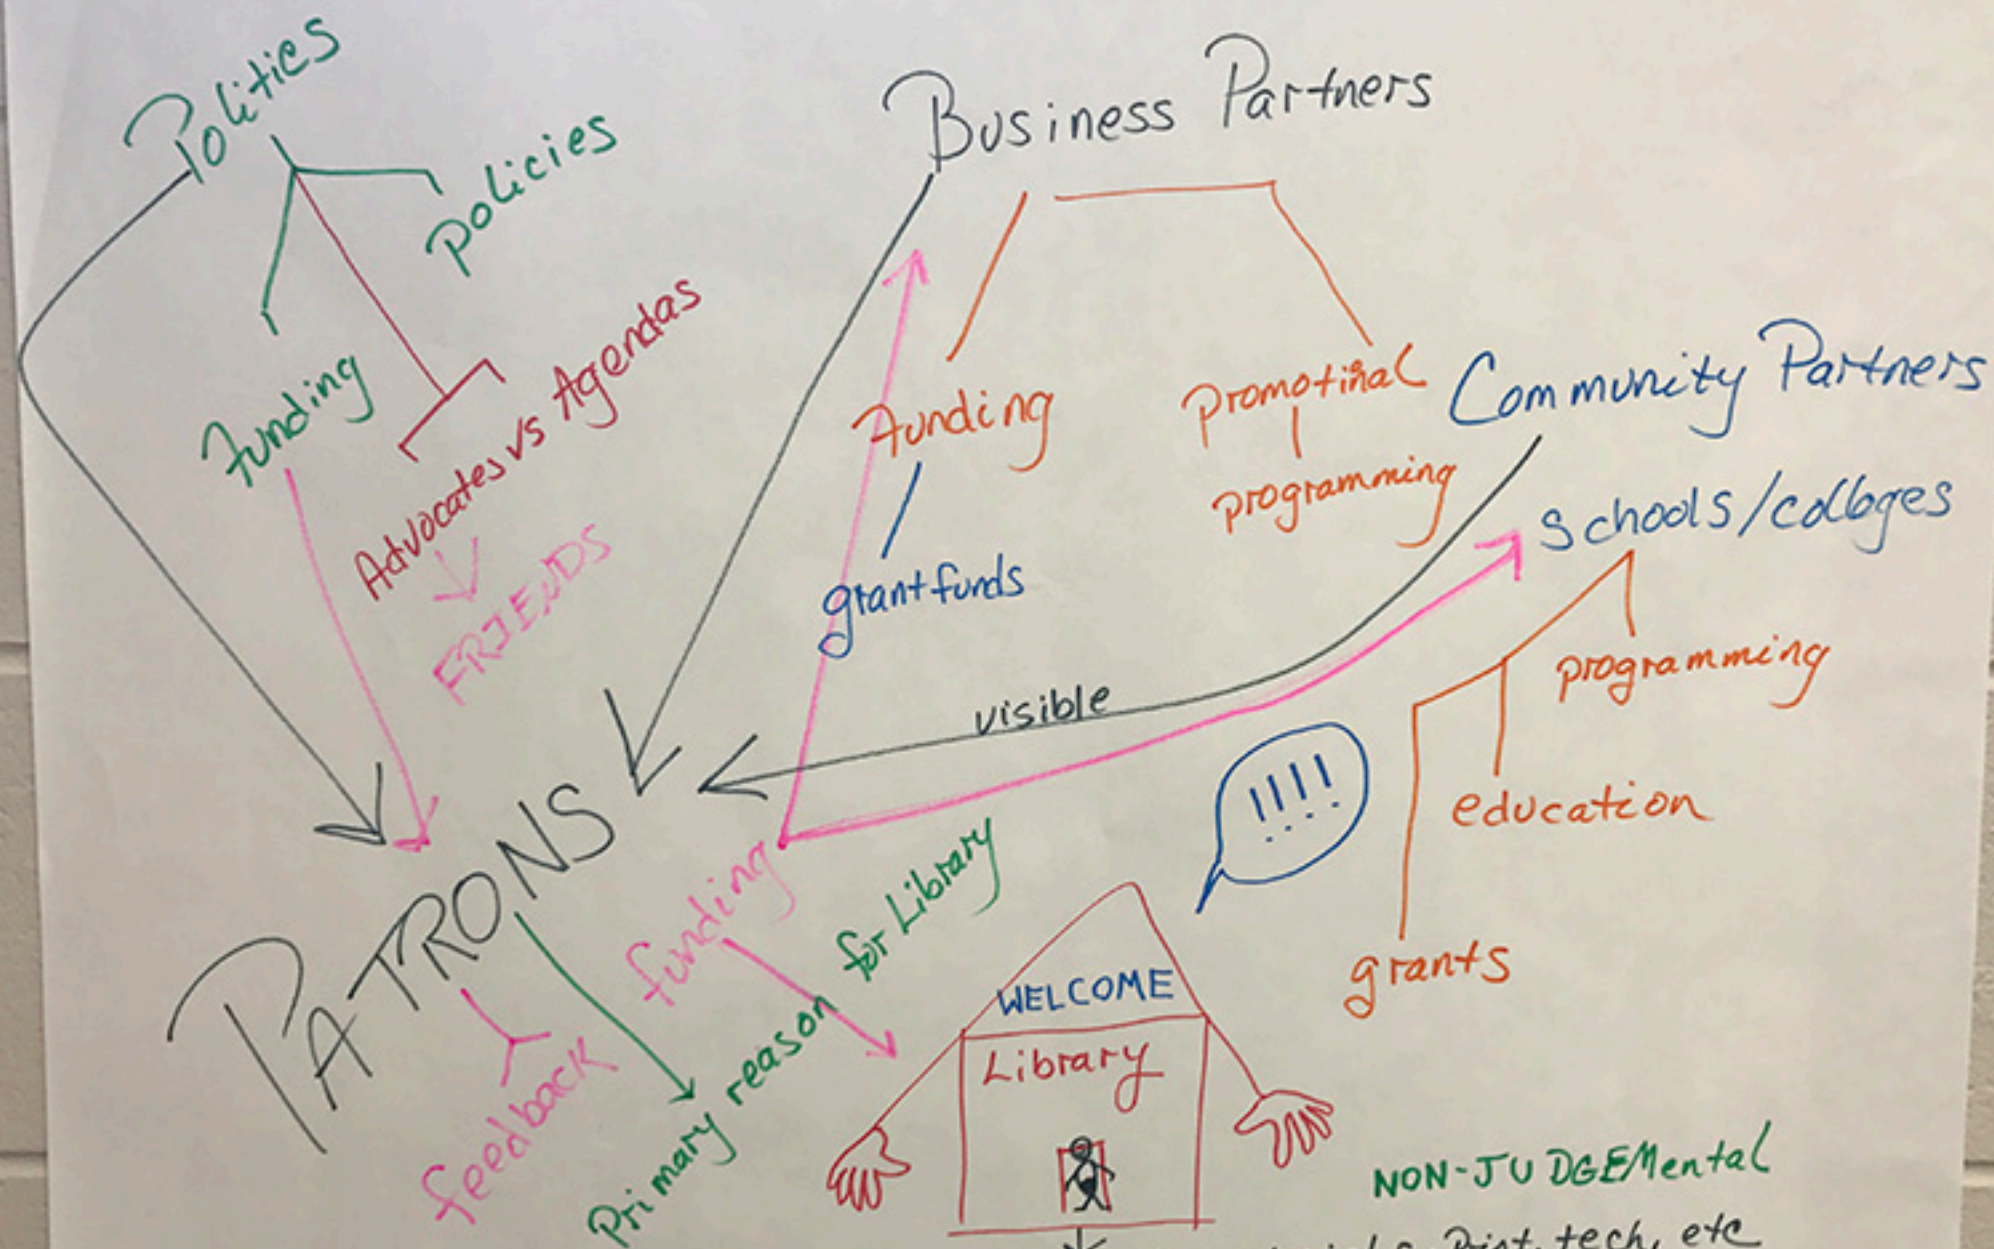 Politics
policies
Funding
Advocates vs Agendas
FRIENDS
Business Partners
Funding
grant funds
promotinal
programming
Community Partners
Schools/colleges
programming
education
grants
visible
!!!!
PATRONS
feedback
funding
Primary reason for Library
WELCOME
Library
NON-JUDGEMental
Print, tech, etc